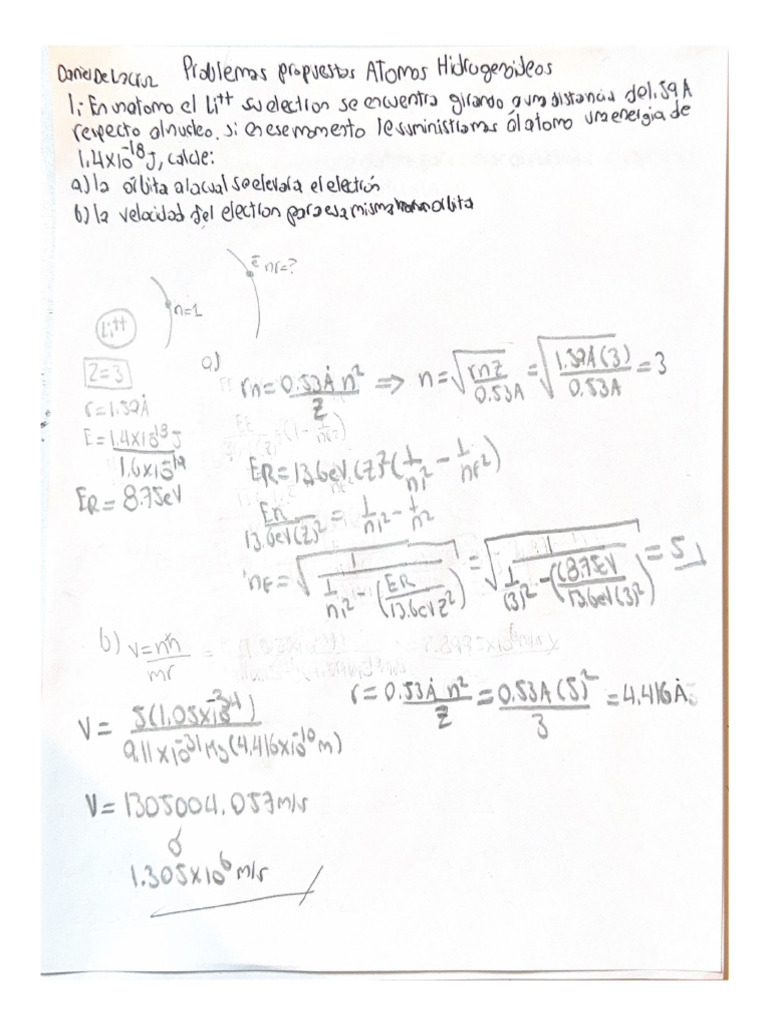 Daniel De La Cruz Problemas propuestos Atomos Hidrogenoideos
1: En un atomo el Li⁺⁺ su electron se encuentra girando a una distancia de 1.59A
respecto al nucleo. si en ese momento le suministramos al atomo una energia de
1.4x10⁻¹⁸J, calcule:
a) la orbita a la cual se elevara el electrón
b) la velocidad del electron para esa misma orbita
e⁻ nf=?
n=1
Li⁺⁺
Z=3
r=1.59Å
E=1.4x10⁻¹⁸J / 1.6x10⁻¹⁹
ER=8.75eV
a)
rn=0.53Å n²/Z ⇒ n=√(rnZ/0.53A) =√(1.59A(3)/0.53A) =3
ER=13.6eV(Z)²(1/ni² - 1/nf²)
ER/13.6eV(Z)² = 1/ni² - 1/n²
nf=√(1/(1/ni² - (ER/13.6eVZ²))) =√(1/(1/(3)² - ((8.75EV/13.6eV(3)²))) =5
b) v=nħ/mr
r=0.53Å n²/Z =0.53A(5)²/3 =4.416Å
V=5(1.05x10⁻³⁴)/9.11x10⁻³¹Kg(4.416x10⁻¹⁰m)
V=1305004.057m/s
ó
1.305x10⁶m/s